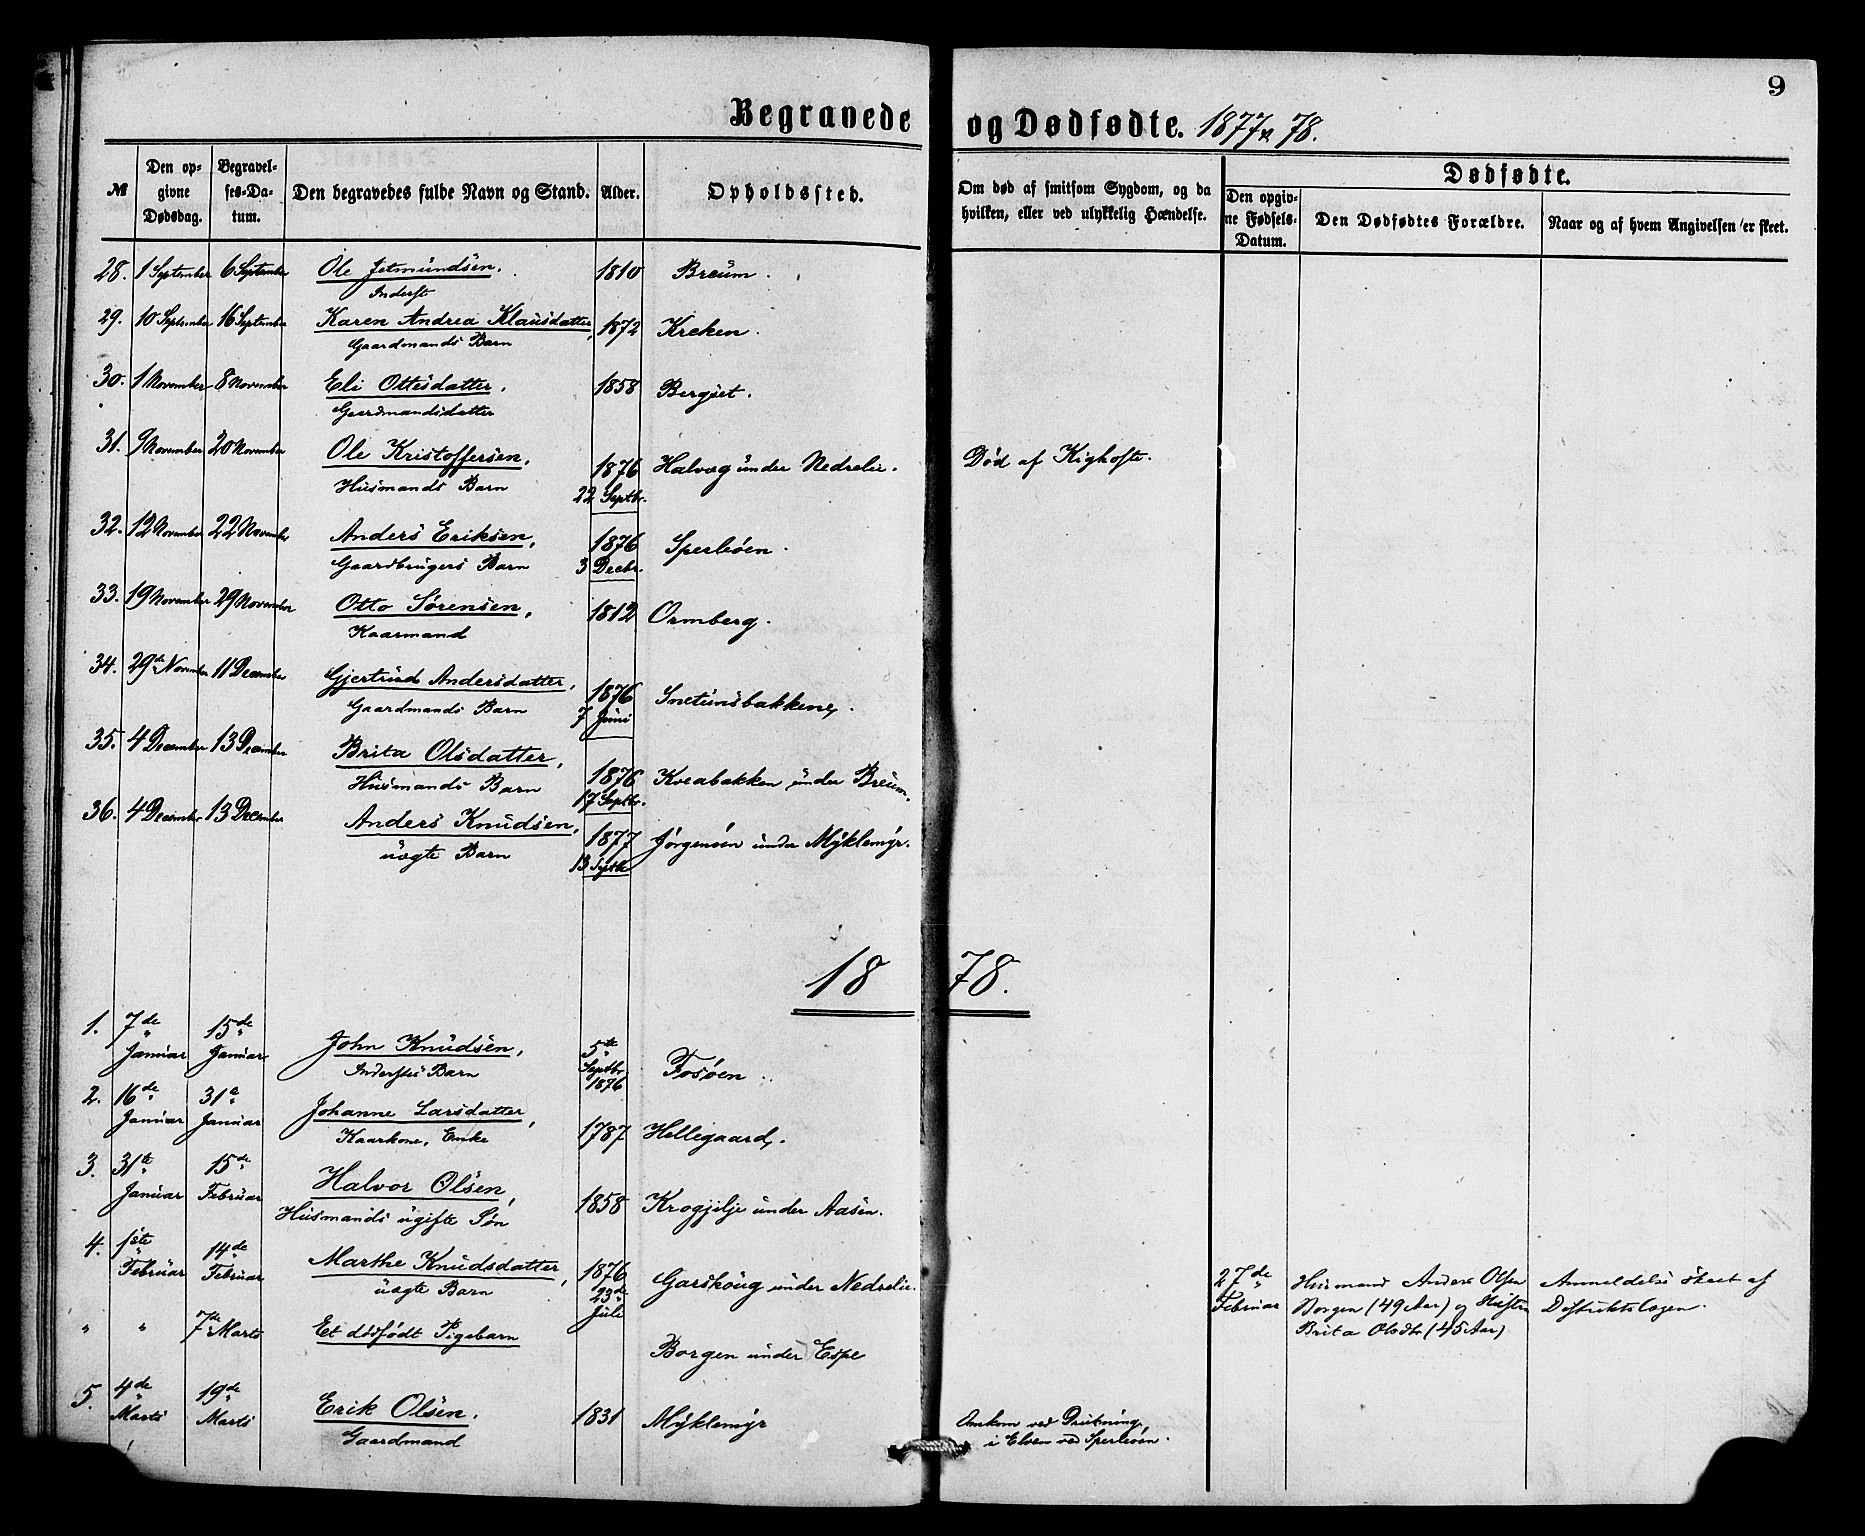 9
Begravede og Dødfødte. 1877 & 78.
№
Den opgivne Dødsdag.
Begravelses-Datum.
Den begravedes fulde Navn og Stand.
Alder.
Opholdssted.
Om død af smitsom Sygdom, og da hvilken, eller ved ulykkelig Hændelse.
Dødfødte.
Den opgivne Fødsels-Datum.
Den Dødfødtes Forældre.
Naar og af hvem Angivelsen er skeet.
28. 1 September 6 September Ole Jetmundsen, 1810 Breum.
Inderst
29. 10 September 16 September Karen Andrea Klausdatter, 1872 Kreken.
Gaardmands Barn
30. 1 November 8 November Eli Ottesdatter, 1858 Bergset.
Gaardmandsdatter
31. 9 November 20 November Ole Kristoffersen, 1876 Halvøg under Nedrelie. Død af Kighoste.
Husmands Barn 22 Septbr.
32. 12 November 22 November Anders Eriksen, 1876 Sperleøen.
Gaardbrugers Barn 3 Decbr.
33. 19 November 29 November Otto Sørensen, 1812 Ormberg.
Kaarmand
34. 29de November 11 December Gjertrud Andersdatter, 1876 Snetunsbakkene.
Gaardmands Barn 7 Juni
35. 4 December 13 December Brita Olsdatter, 1876 Kveabakken under Breum.
Husmands Barn 17 Septbr.
36. 4 December 13 December Anders Knudsen, 1877 Jørgensøen under Myklemyr.
uægte Barn 13
1878.
1. 7de Januar 15de Januar John Knudsen, 5te Septbr 1876 Fosøen.
Inderstes Barn
2. 16de Januar 31te Januar Johanne Larsdatter, 1787 Hellegaard.
Kaarkone, Enke
3. 31te Januar 15de Februar Halvor Olsen, 1858 Krogjilje under Aasen.
Husmands ugifte Søn
4. 1ste Februar 14de Februar Marthe Knudsdatter, 1876 23de Juli Garskoug under Nedrelie.
uægte Barn
" " 7de Marts Et dødfødt Pigebarn Borgen under Espe
27de Februar Husmand Anders Olsen Borgen (49 Aar) og Hustru Brita Olsdtr (45 Aar)
Anmeldelse skeet af Distriktslægen.
5. 4de Marts 19de Marts Erik Olsen, 1831 Myklemyr Omkom ved Drukning
Gaardmand i Elven ved Sperleøen.